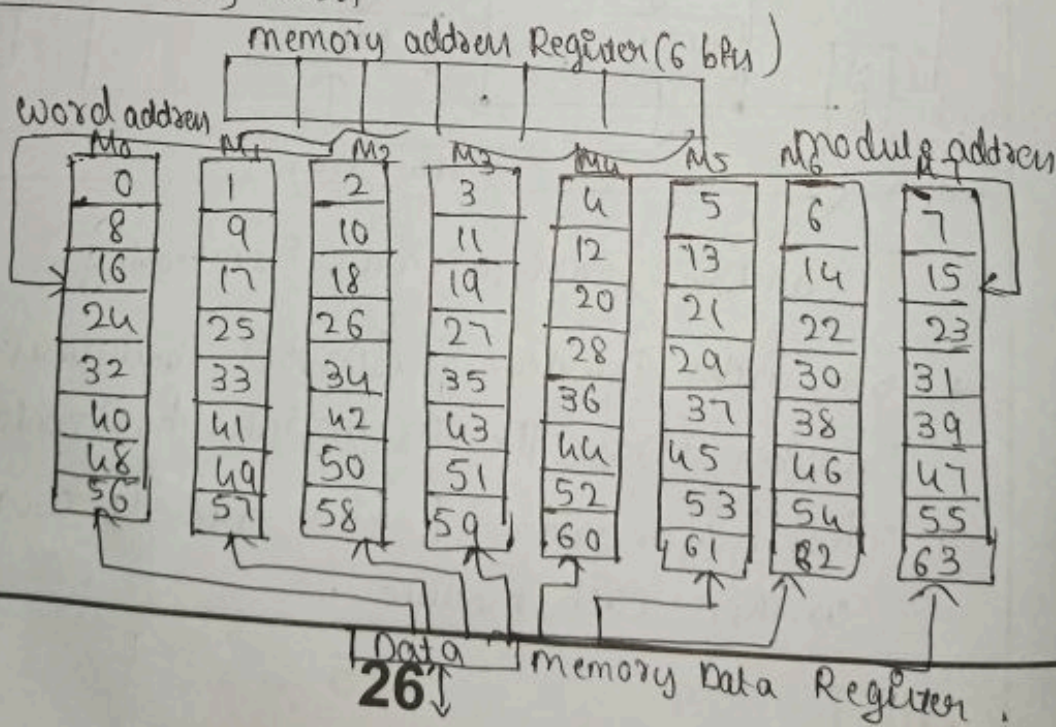 memory address Register (6 bits)
word address
module address
M0 M1 M2 M3 M4 M5 M6 M7
0 1 2 3 4 5 6 7
8 9 10 11 12 13 14 15
16 17 18 19 20 21 22 23
24 25 26 27 28 29 30 31
32 33 34 35 36 37 38 39
40 41 42 43 44 45 46 47
48 49 50 51 52 53 54 55
56 57 58 59 60 61 62 63
Data Memory Data Register.
26